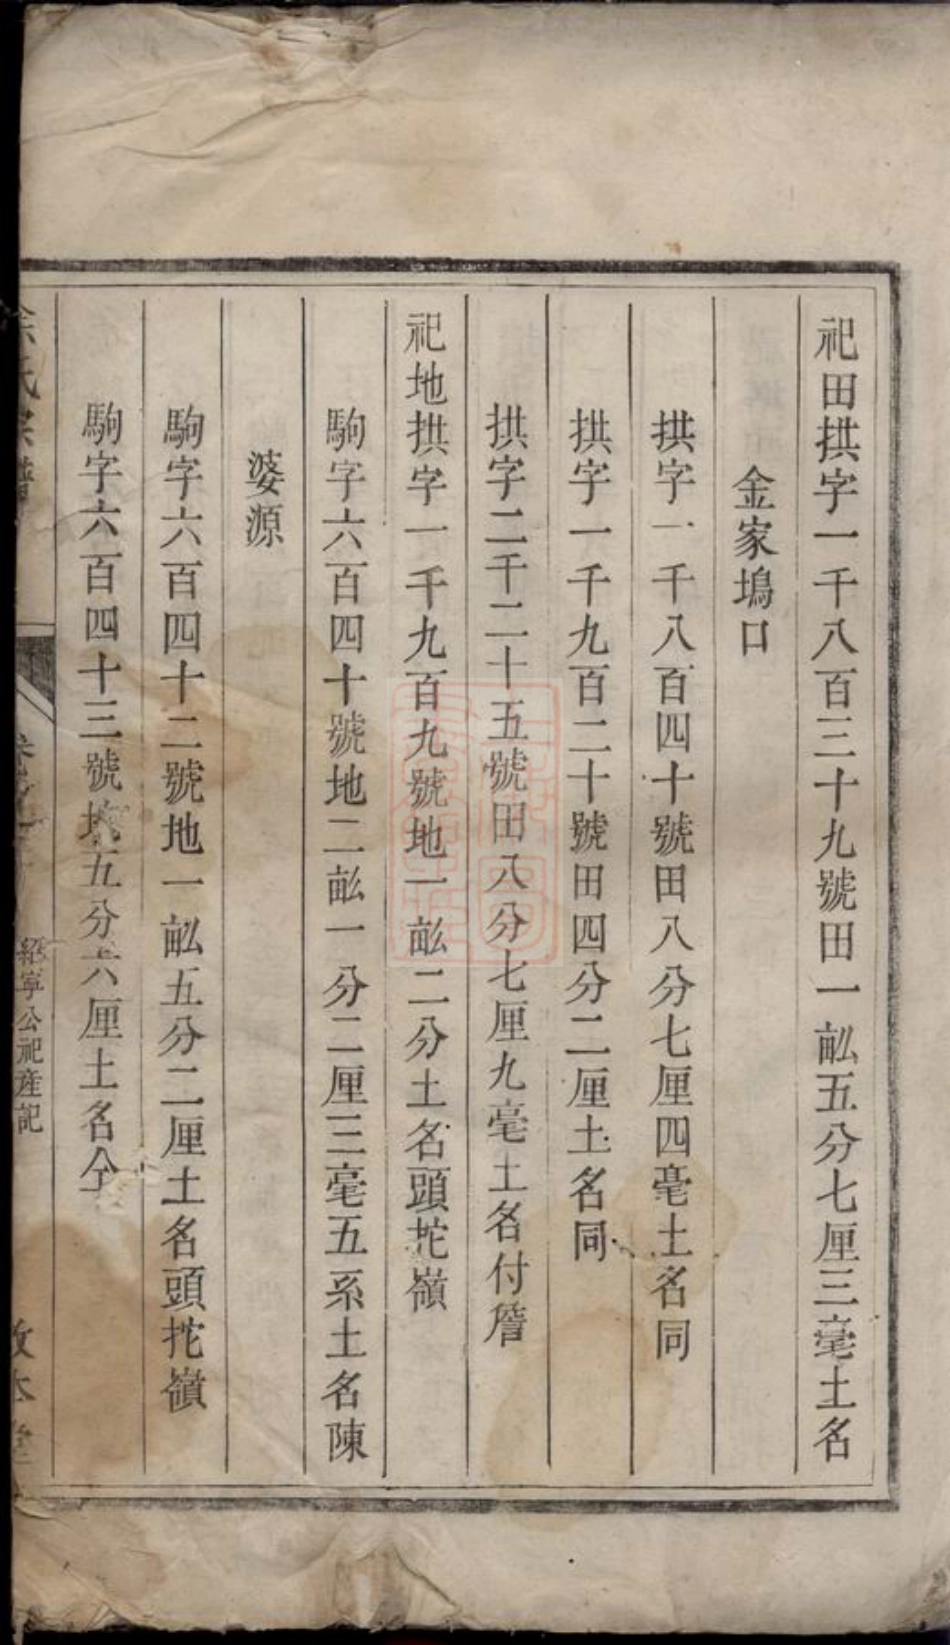 祀田拱字一千八百三十九號田一畆五分七厘三毫土名
金家塢口
拱字一千八百四十號田八分七厘四毫土名同
拱字一千九百二十號田四分二厘土名同
拱字二千二十五號田八分七厘九毫土名付𠆩
祀地拱字一千九百九號地一畆二分土名頭拕嶺
駒字六百四十號地二畆一分二厘三毫五系土名陳
婆源
駒字六百四十二號地一畆五分二厘土名頭拕嶺
駒字六百四十三號地五分六厘土名仝
紹寧公祀產記